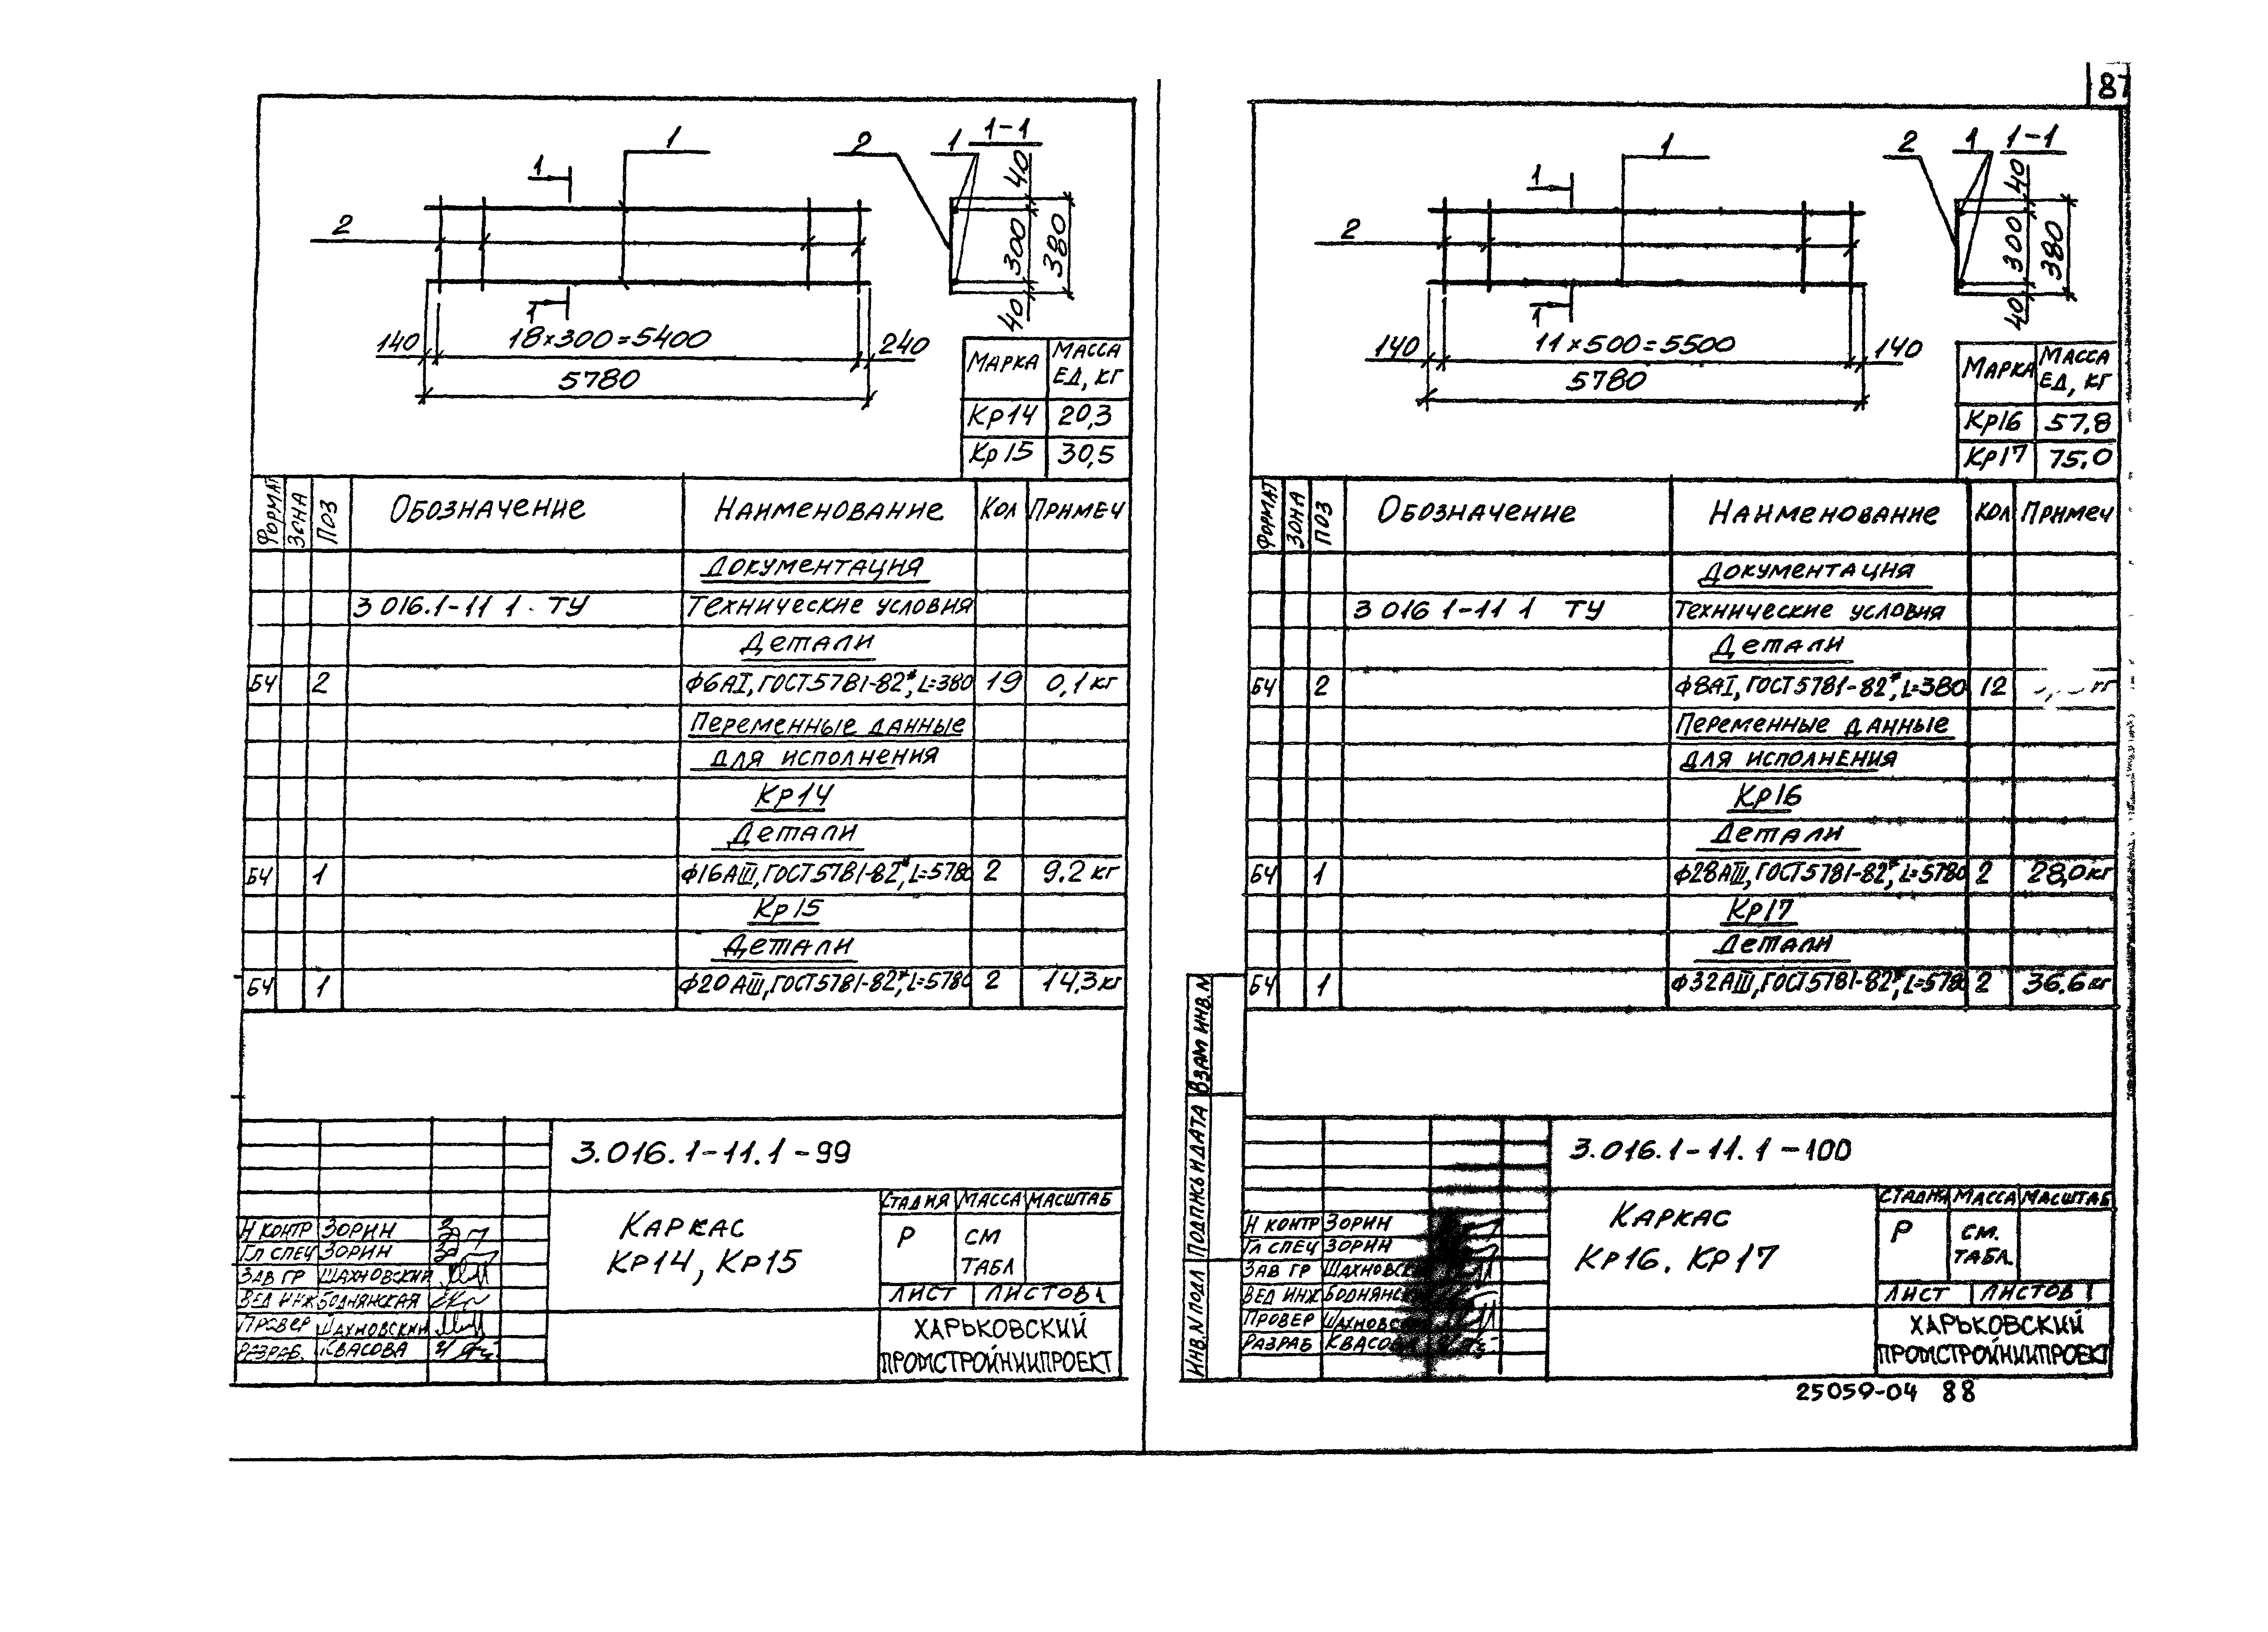 87
1
1
2
1
1-1
2
40
300
380
40
1
140
18×300=5400
240
5780
МАРКА МАССА ЕД, КГ
Кр14 20,3
Кр15 30,5
ФОРМАТ ЗОНА ПОЗ ОБОЗНАЧЕНИЕ НАИМЕНОВАНИЕ КОЛ ПРИМЕЧ
ДОКУМЕНТАЦИЯ
3 016.1-11 1 · ТУ ТЕХНИЧЕСКИЕ УСЛОВИЯ
ДЕТАЛИ
БЧ 2 Ф6АI, ГОСТ5781-82*, L=380 19 0,1 кг
ПЕРЕМЕННЫЕ ДАННЫЕ
ДЛЯ ИСПОЛНЕНИЯ
Кр14
ДЕТАЛИ
БЧ 1 Ф16АIII, ГОСТ5781-82*, L=5780 2 9.2 кг
Кр15
ДЕТАЛИ
БЧ 1 Ф20АIII, ГОСТ5781-82*, L=5780 2 14,3 кг
3.016.1-11.1-99
КАРКАС
КР14, КР15
СТАДИЯ МАССА МАСШТАБ
Р СМ
ТАБЛ
ЛИСТ ЛИСТОВ 1
Н КОНТР ЗОРИН
ГЛ СПЕЧ ЗОРИН
ЗАВ ГР ШАХНОВСКИЙ
ВЕД ИНЖ БОДНЯНСКАЯ
ПРОВЕР ШАХНОВСКИЙ
РАЗРАБ. КВАСОВА
ХАРЬКОВСКИЙ
ПРОМСТРОЙНИИПРОЕКТ
1
1
2
1
1-1
2
40
300
380
40
1
140
11×500=5500
140
5780
МАРКА МАССА ЕД, КГ
Кр16 57.8
Кр17 75.0
ФОРМАТ ЗОНА ПОЗ ОБОЗНАЧЕНИЕ НАИМЕНОВАНИЕ КОЛ ПРИМЕЧ
ДОКУМЕНТАЦИЯ
3 016 1-11 1 ТУ ТЕХНИЧЕСКИЕ УСЛОВИЯ
ДЕТАЛИ
БЧ 2 Ф8АI, ГОСТ5781-82*, L=380 12 кг
ПЕРЕМЕННЫЕ ДАННЫЕ
ДЛЯ ИСПОЛНЕНИЯ
Кр16
ДЕТАЛИ
БЧ 1 Ф28АIII, ГОСТ5781-82*, L=5780 2 28,0 кг
Кр17
ДЕТАЛИ
БЧ 1 Ф32АIII, ГОСТ5781-82*, L=5780 2 36.6 кг
ИНВ.N ПОДЛ ПОДПИСЬ И ДАТА ВЗАМ ИНВ.N
3.016.1-11.1-100
КАРКАС
КР16. КР17
СТАДИЯ МАССА МАСШТАБ
Р СМ.
ТАБЛ.
ЛИСТ ЛИСТОВ 1
Н КОНТР ЗОРИН
ГЛ СПЕЧ ЗОРИН
ЗАВ ГР
ВЕД ИНЖ
ПРОВЕР
РАЗРАБ
ХАРЬКОВСКИЙ
ПРОМСТРОЙНИИПРОЕКТ
25059-04 88